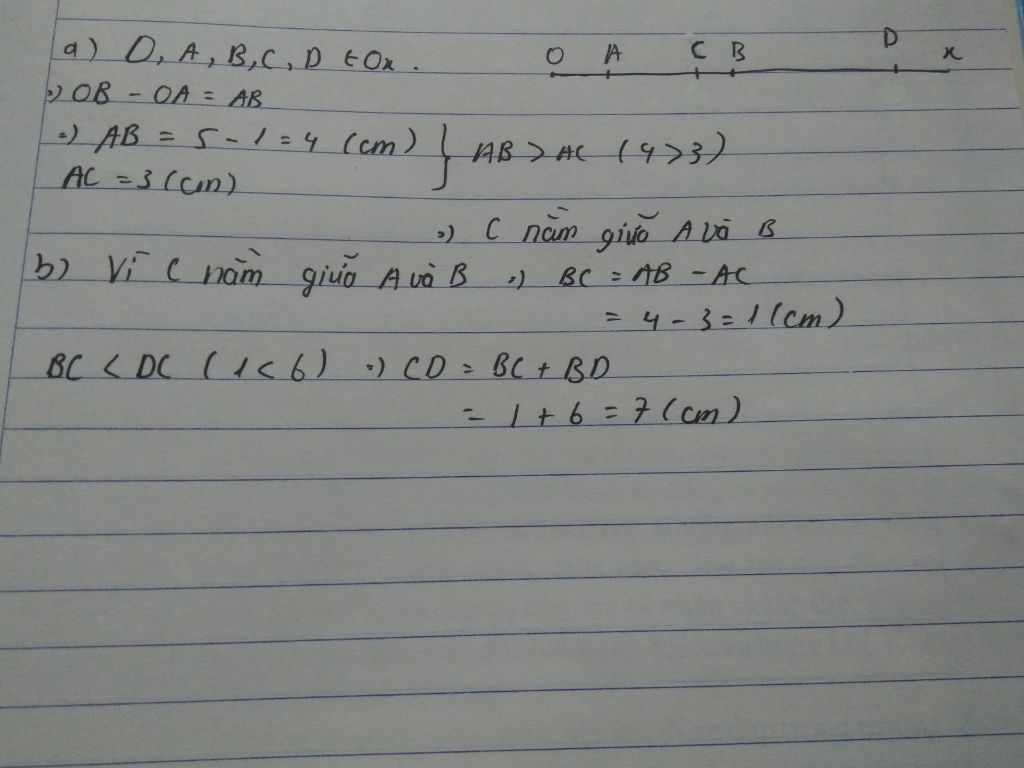 a) O, A, B, C, D ∈ Ox.
O A C B D x
=) OB - OA = AB
=) AB = 5 - 1 = 4 (cm) } AB > AC (4 > 3)
AC = 3 (cm)
=) C nằm giữa A và B
b) Vì C nằm giữa A và B =) BC = AB - AC
= 4 - 3 = 1 (cm)
BC < DC (1 < 6) =) CD = BC + BD
= 1 + 6 = 7 (cm)